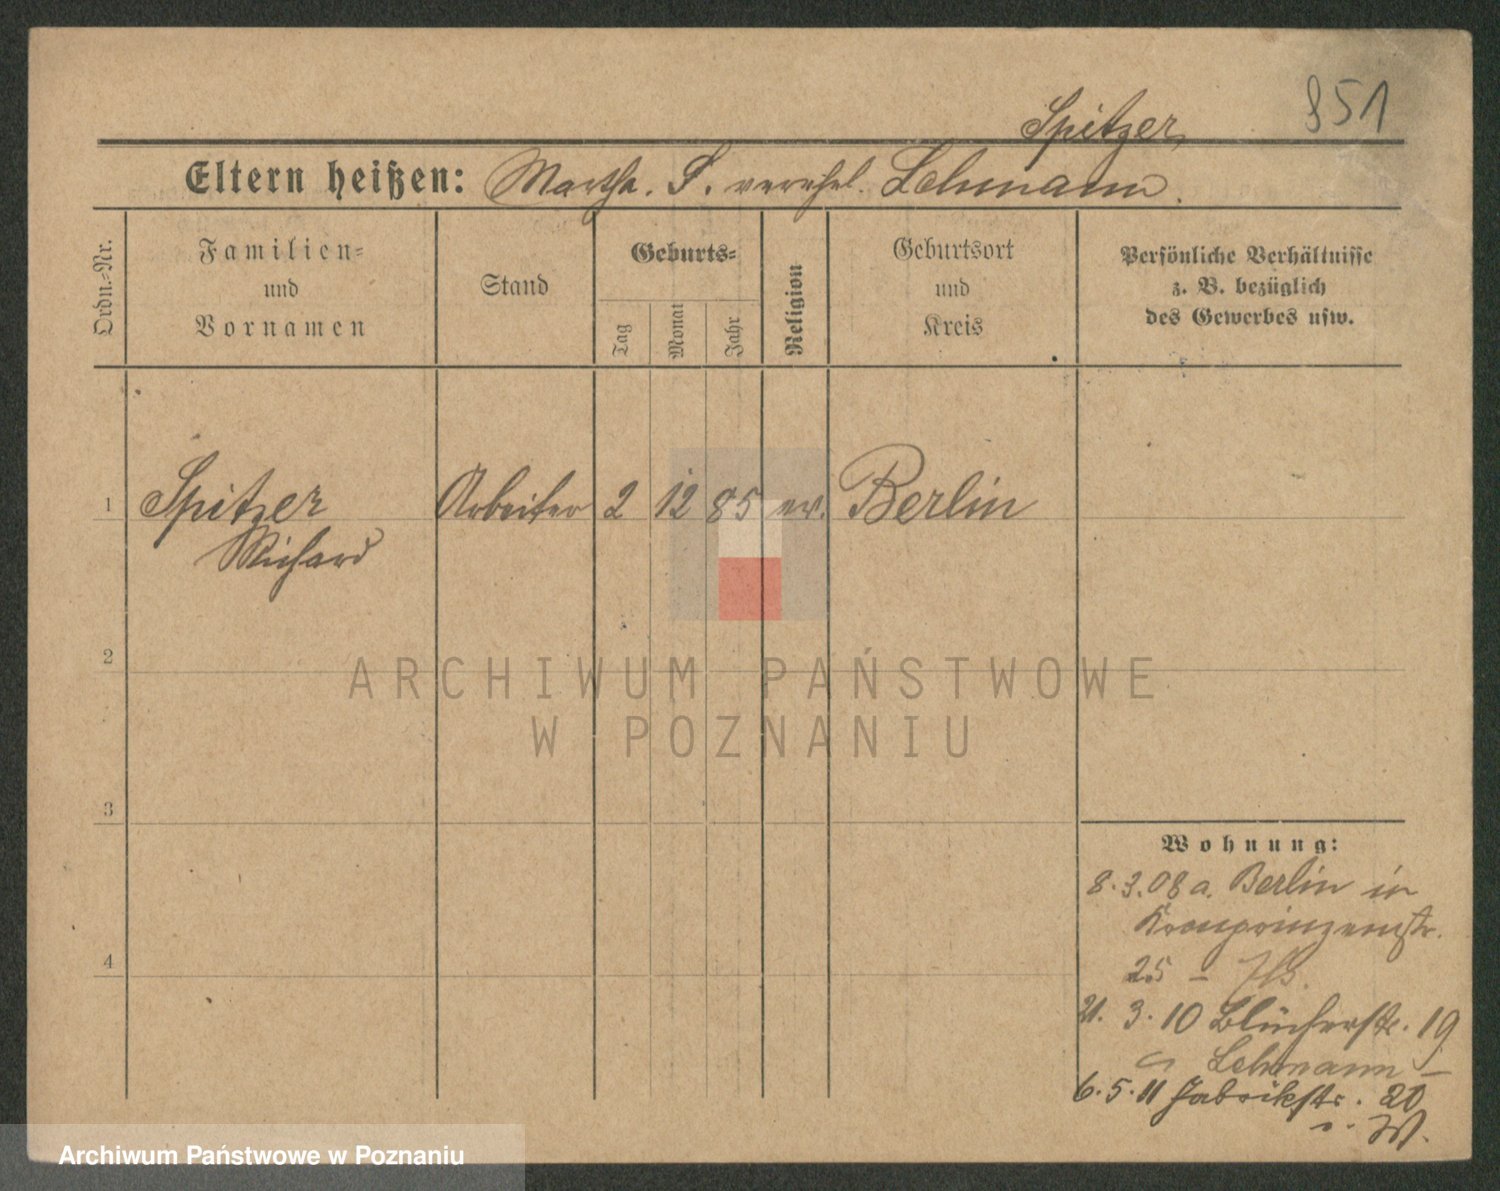 851
Spitzer,
Eltern heißen: Martha. S. verehel. Lehmann.
Ordn.-Nr.
Familien-
und
Vornamen
Stand
Geburts-
Tag
Monat
Jahr
Religion
Geburtsort
und
Kreis
Persönliche Verhältnisse
z. B. bezüglich
des Gewerbes usw.
1 Spitzer Arbeiter 2 12 85 ev. Berlin
Richard
2
3
4
ARCHIWUM PAŃSTWOWE
W POZNANIU
Wohnung:
8.3.08 a. Berlin in
Kronprinzenstr.
25 –
21. 3. 10 Blücherstr. 19
Lehmann –
6.5.11 Fabrikstr. 20
Archiwum Państwowe w Poznaniu